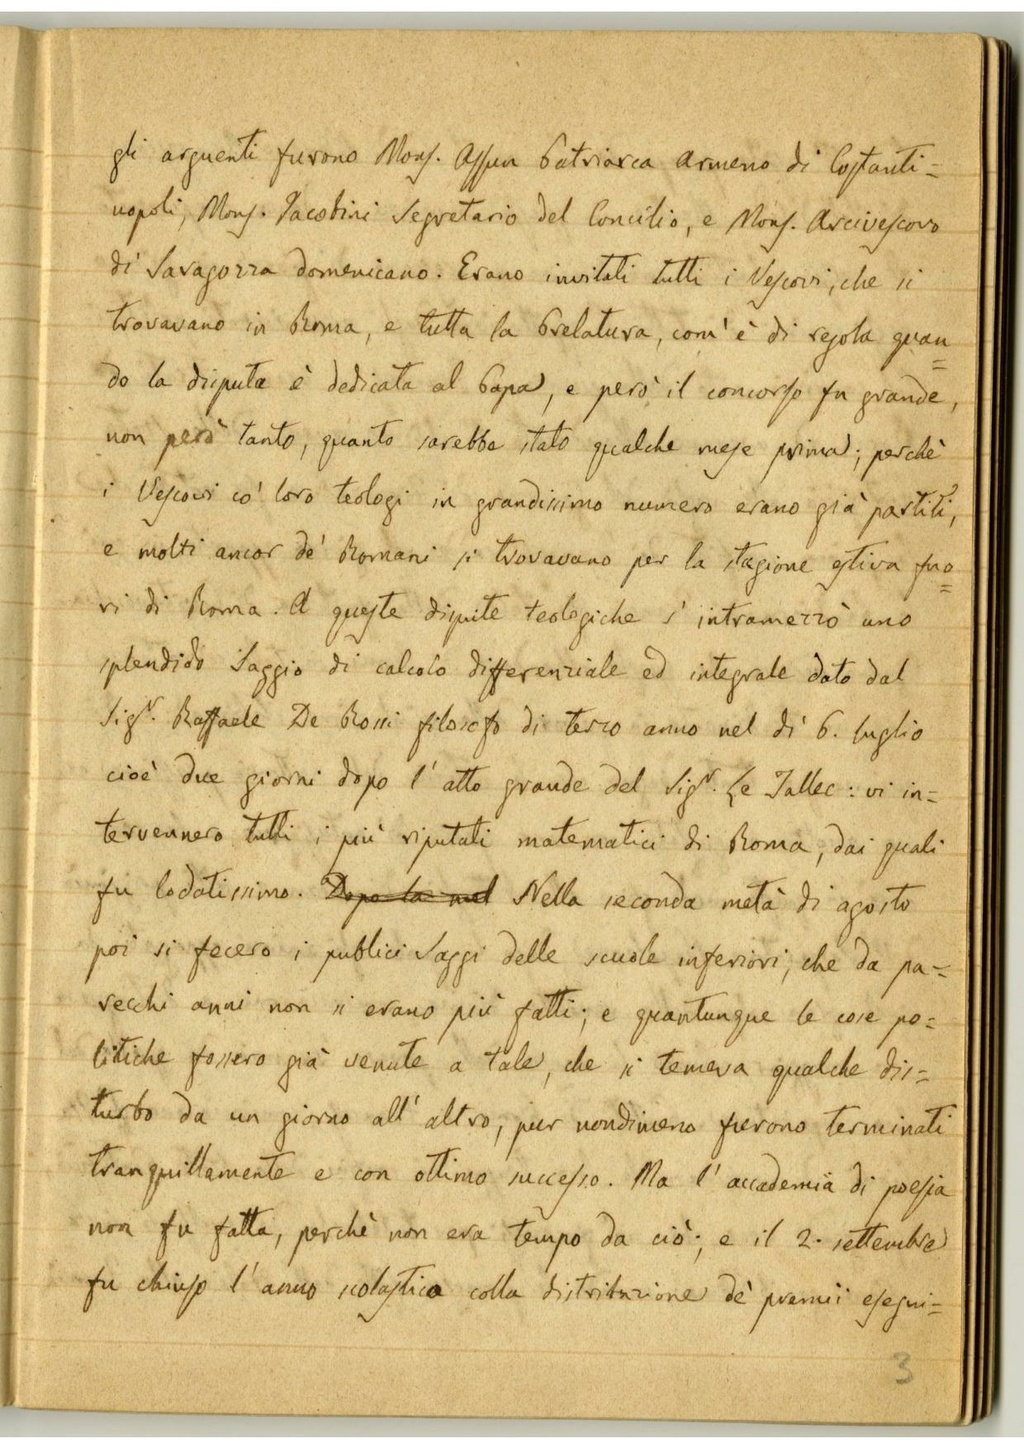 gli arguenti furono Mons. Assun Patriarca Armeno di Costanti=
nopoli, Mons. Jacobini Segretario del Concilio, e Mons. Arcivescovo
di Saragozza domenicano. Erano invitati tutti i Vescovi, che si
trovavano in Roma, e tutta la Prelatura, com' è di regola quan=
do la disputa è dedicata al Papa, e però il concorso fu grande,
non però tanto, quanto sarebbe stato qualche mese prima; perchè
i Vescovi co' loro teologi in grandissimo numero erano già partiti,
e molti ancor de' Romani si trovavano per la stagione estiva fuo=
ri di Roma. A queste dispute teologiche s' intramezzò uno
splendido Saggio di calcolo differenziale ed integrale dato dal
Sigr. Raffaele De Rossi filosofo di terzo anno nel dì 6. luglio
cioè due giorni dopo l' atto grande del Sigr. Le Tallec: vi in=
tervennero tutti i più riputati matematici di Roma, dai quali
fu lodatissimo. Dopo la met Nella seconda metà di agosto
poi si fecero i publici Saggi delle scuole inferiori, che da pa=
recchi anni non si erano più fatti; e quantunque le cose po=
litiche fossero già venute a tale, che si temeva qualche dis=
turbo da un giorno all' altro, pur nondimeno furono terminati
tranquillamente e con ottimo successo. Ma l' accademia di poesia
non fu fatta, perchè non era tempo da ciò; e il 2. settembre
fu chiuso l' anno scolastico colla distribuzione de' premii esegui=
3